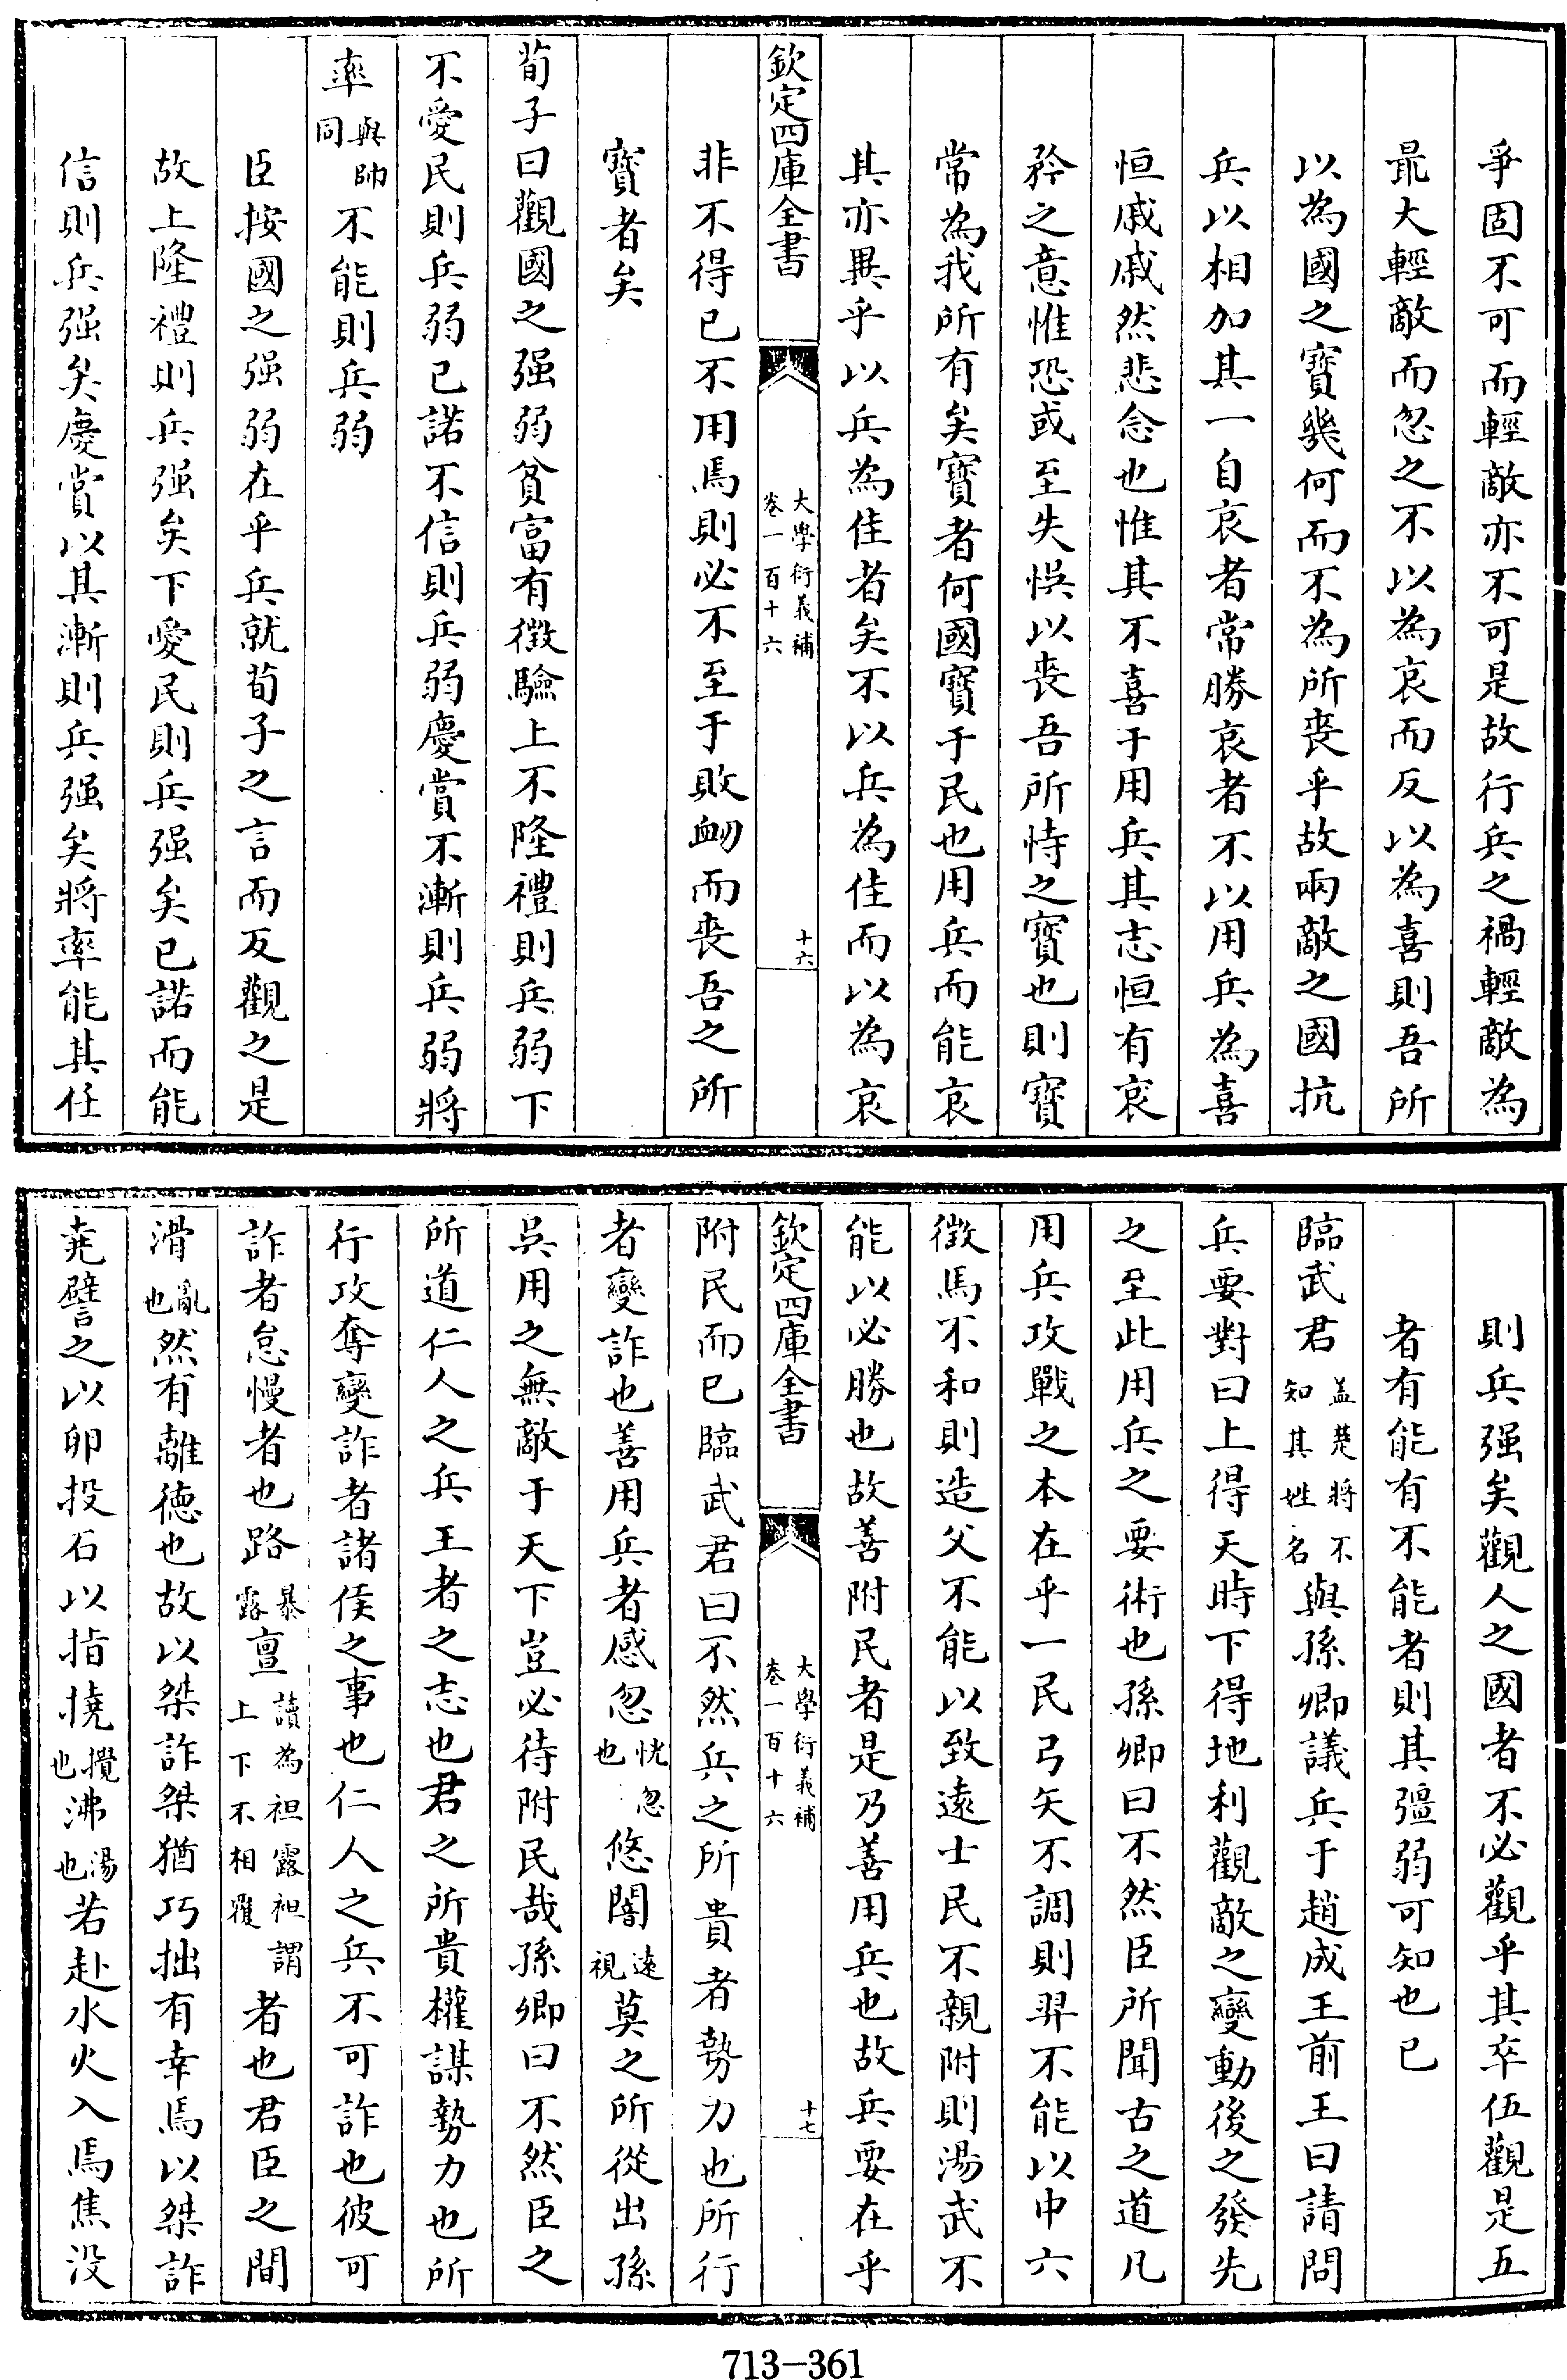 爭固不可而輕敵亦不可是故行兵之禍輕敵為
最大輕敵而忽之不以為哀而反以為喜則吾所
以為國之寳幾何而不為所喪乎故兩敵之國抗
兵以相加其一自哀者常勝哀者不以用兵為喜
恒戚戚然悲念也惟其不喜于用兵其志恒有哀
矜之意惟恐或至失悞以喪吾所恃之寳也則寳
常為我所有矣寳者何國寳于民也用兵而能哀
其亦異乎以兵為佳者矣不以兵為佳而以為哀
欽定四庫全書 大學衍義補 卷一百十六 十六
非不得已不用焉則必不至于敗衂而喪吾之所
寳者矣
荀子曰觀國之强弱貧富有徵驗上不隆禮則兵弱下
不愛民則兵弱已諾不信則兵弱慶賞不漸則兵弱將
率與帥同不能則兵弱
臣按國之强弱在乎兵就荀子之言而反觀之是
故上隆禮則兵强矣下愛民則兵强矣已諾而能
信則兵强矣慶賞以其漸則兵强矣將率能其任
則兵强矣觀人之國者不必觀乎其卒伍觀是五
者有能有不能者則其彊弱可知也已
臨武君盖楚將不知其姓名與孫卿議兵于趙成王前王曰請問
兵要對曰上得天時下得地利觀敵之變動後之發先
之至此用兵之要術也孫卿曰不然臣所聞古之道凡
用兵攻戰之本在乎一民弓矢不調則羿不能以中六
徴馬不和則造父不能以致逺士民不親附則湯武不
能以必勝也故善附民者是乃善用兵也故兵要在乎
欽定四庫全書 大學衍義補 卷一百十六 十七
附民而已臨武君曰不然兵之所貴者勢力也所行
者變詐也善用兵者感忽恍忽也悠闇逺視莫之所從出孫
吳用之無敵于天下豈必待附民哉孫卿曰不然臣之
所道仁人之兵王者之志也君之所貴權謀勢力也所
行攻奪變詐者諸侯之事也仁人之兵不可詐也彼可
詐者怠慢者也路暴露亶讀為袒露袒謂上下不相覆者也君臣之間
滑亂也然有離徳也故以桀詐桀猶巧拙有幸焉以桀詐
堯譬之以卵投石以指撓攪也沸湯也若赴水火入焉焦没
713-361